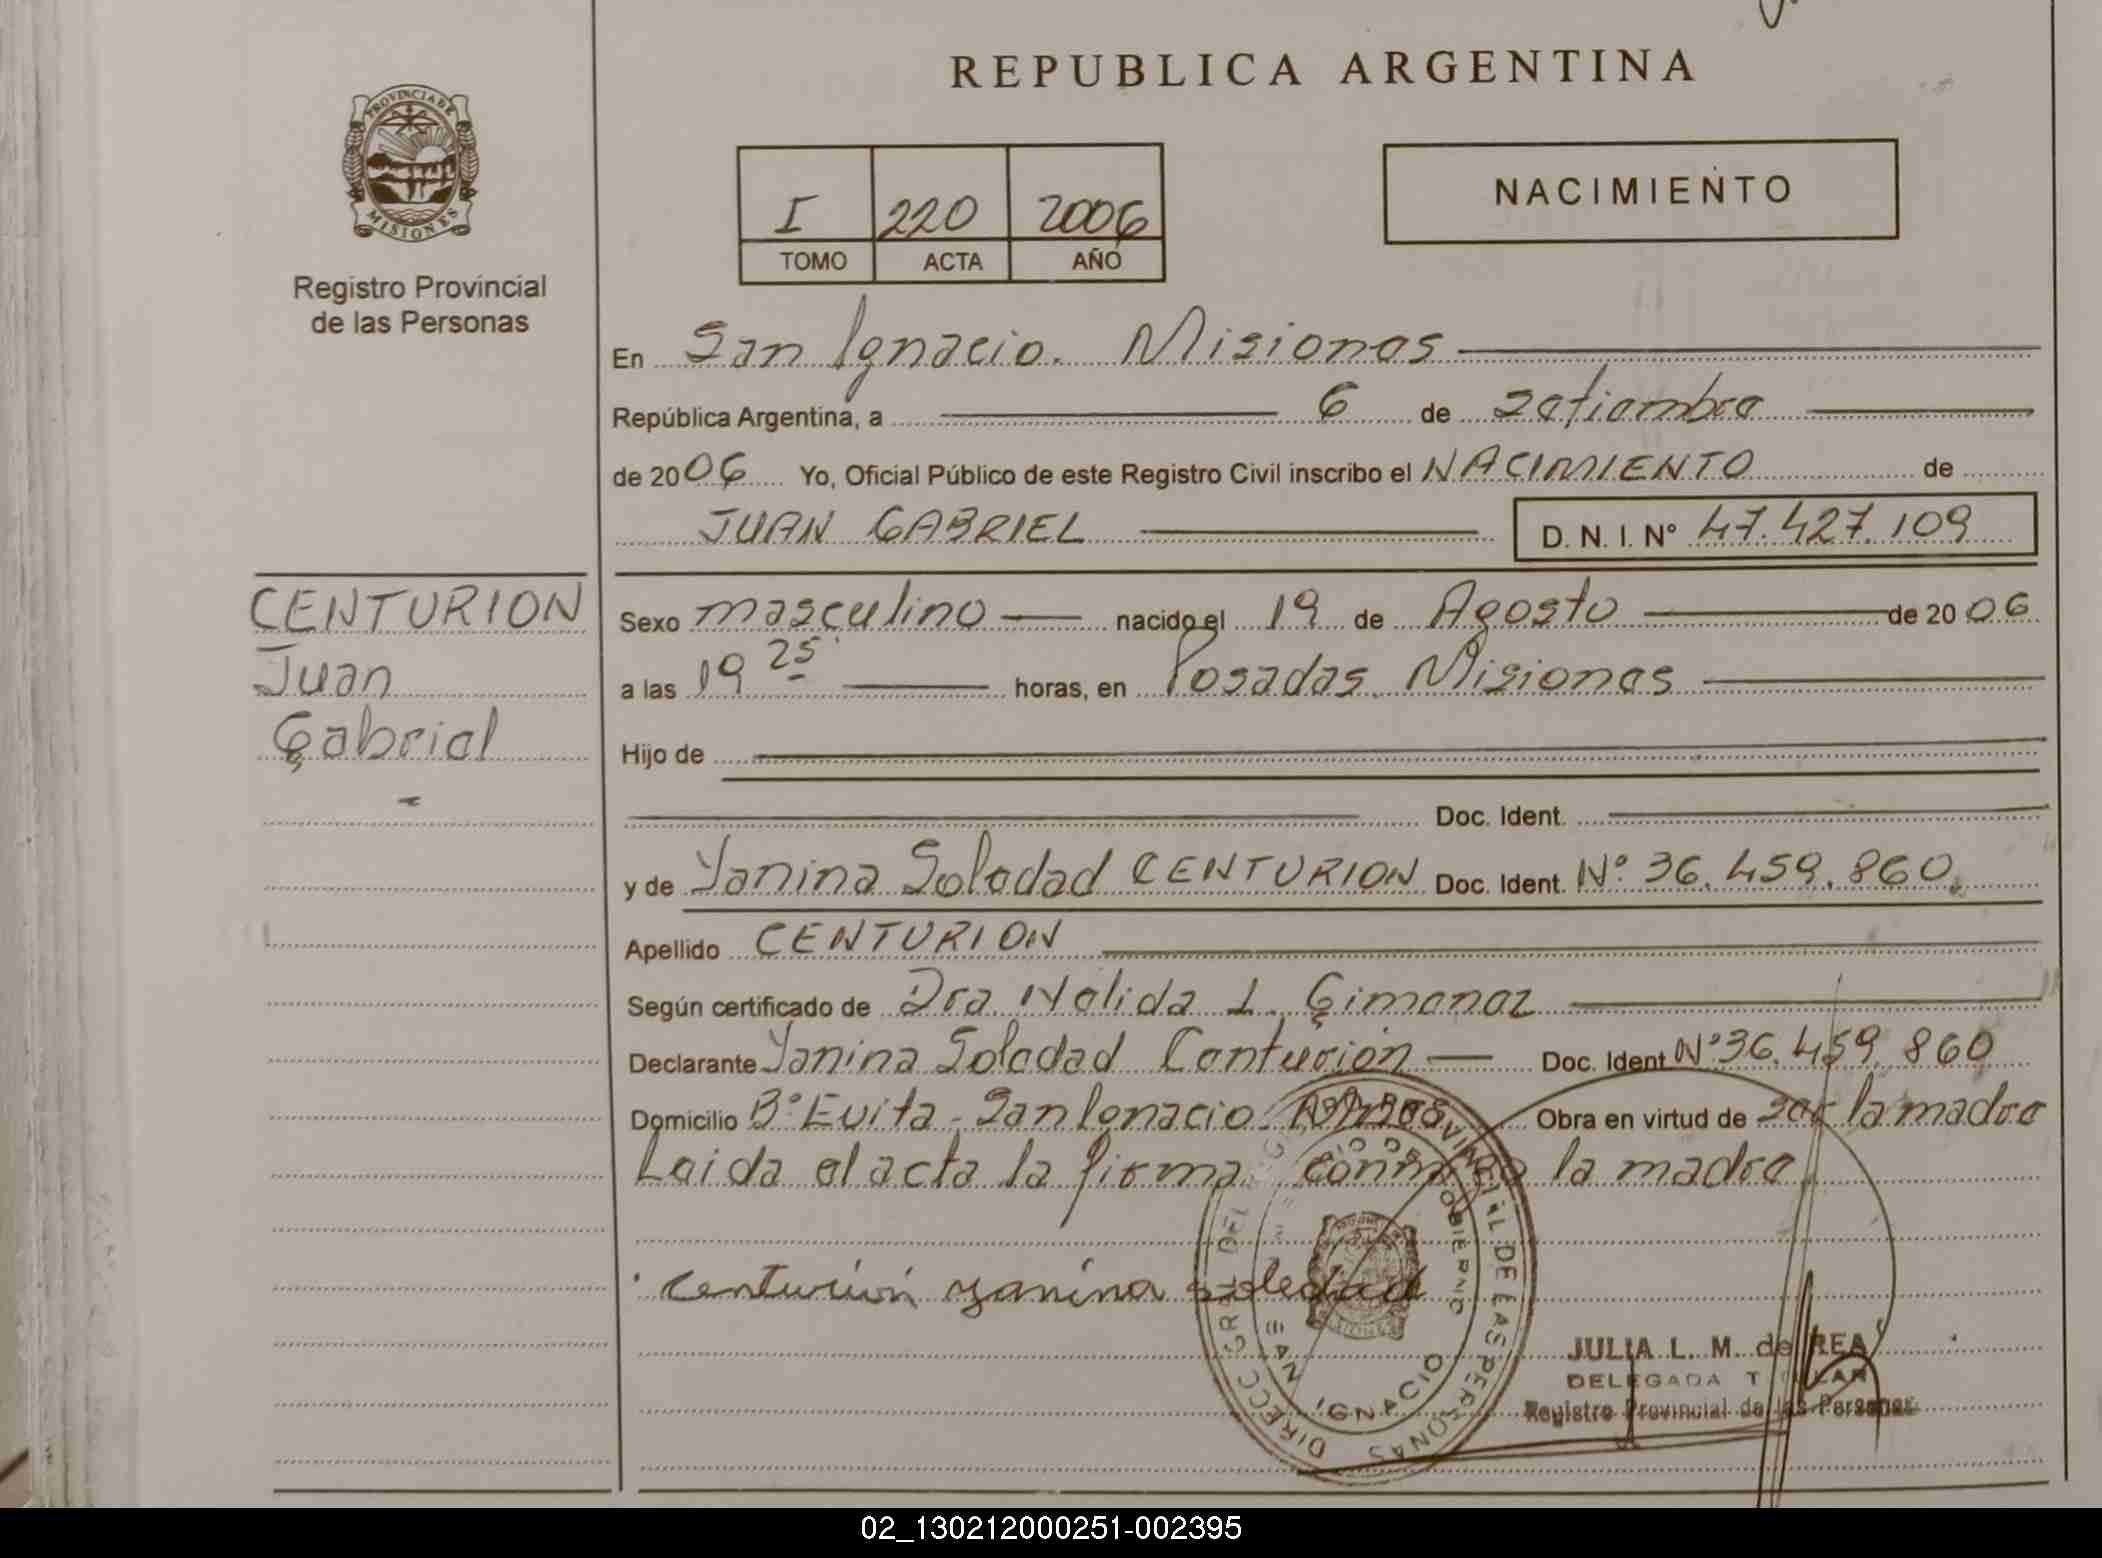 REPUBLICA ARGENTINA
PROVINCIA DE
MISIONES
Registro Provincial
de las Personas
I 220 2006
TOMO ACTA AÑO
NACIMIENTO
En San Ignacio. Misiones
República Argentina, a 6 de setiembre
de 2006 Yo, Oficial Público de este Registro Civil inscribo el NACIMIENTO de
JUAN GABRIEL D. N. I. Nº 47.427.109
CENTURION
Juan
Gabriel
Sexo masculino nacido el 19 de Agosto de 2006
a las 19 25 horas, en Posadas. Misiones
Hijo de
Doc. Ident.
y de Yanina Soledad CENTURION Doc. Ident. Nº 36.459.860.
Apellido CENTURION
Según certificado de Dra Nelida L. Gimenez
Declarante Yanina Soledad Centurión Doc. Ident Nº 36.459.860
Domicilio Bº Evita - San Ignacio. Mnes Obra en virtud de ser la madre
Leida el acta la firma conmigo la madre
centurión yanina soledad
DIRECC GRAL DEL REG PROVINCIAL DE LAS PERSONAS
GOBIERNO
SAN IGNACIO
JULIA L. M. de REA
DELEGADA TITULAR
Registro Provincial de las Personas
02_130212000251-002395